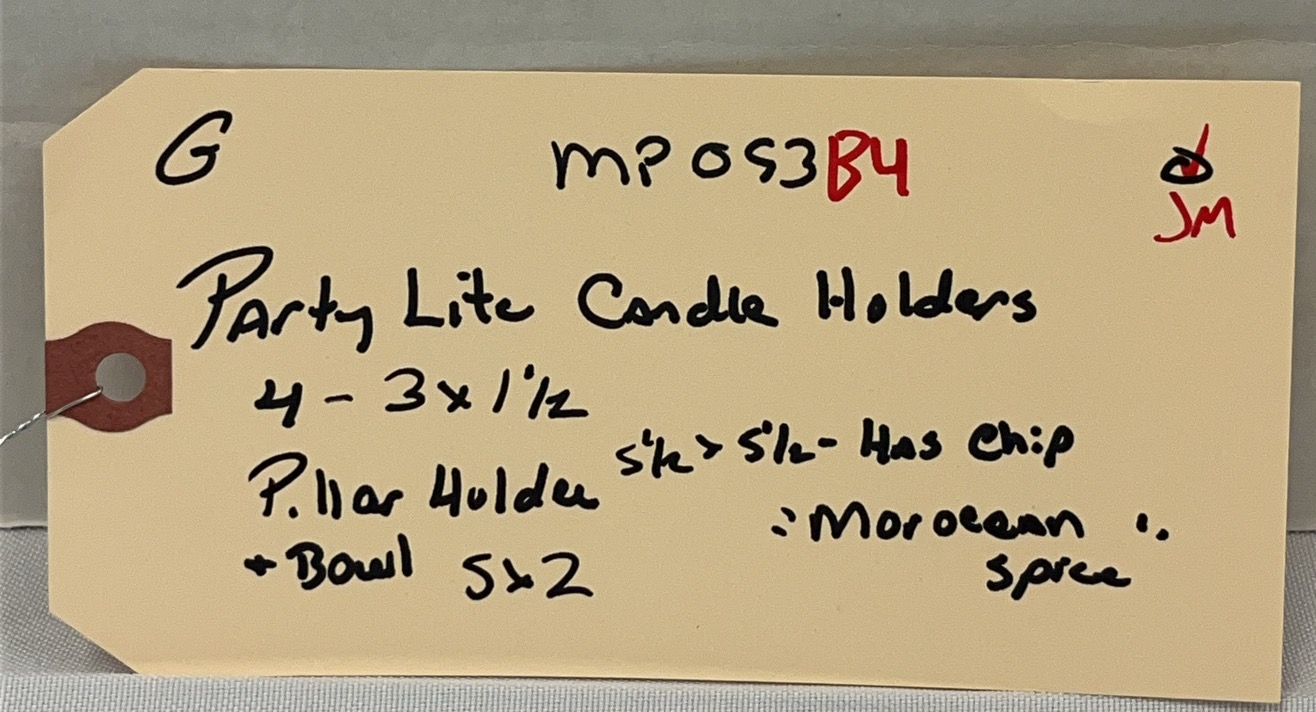 G MP053B4
JM
Party Lite Candle Holders
4 - 3 x 1 1/2
Pillar Holder 5 1/2 x 5 1/2 - Has Chip
+ Bowl 5x2 "Morocean
Spice"